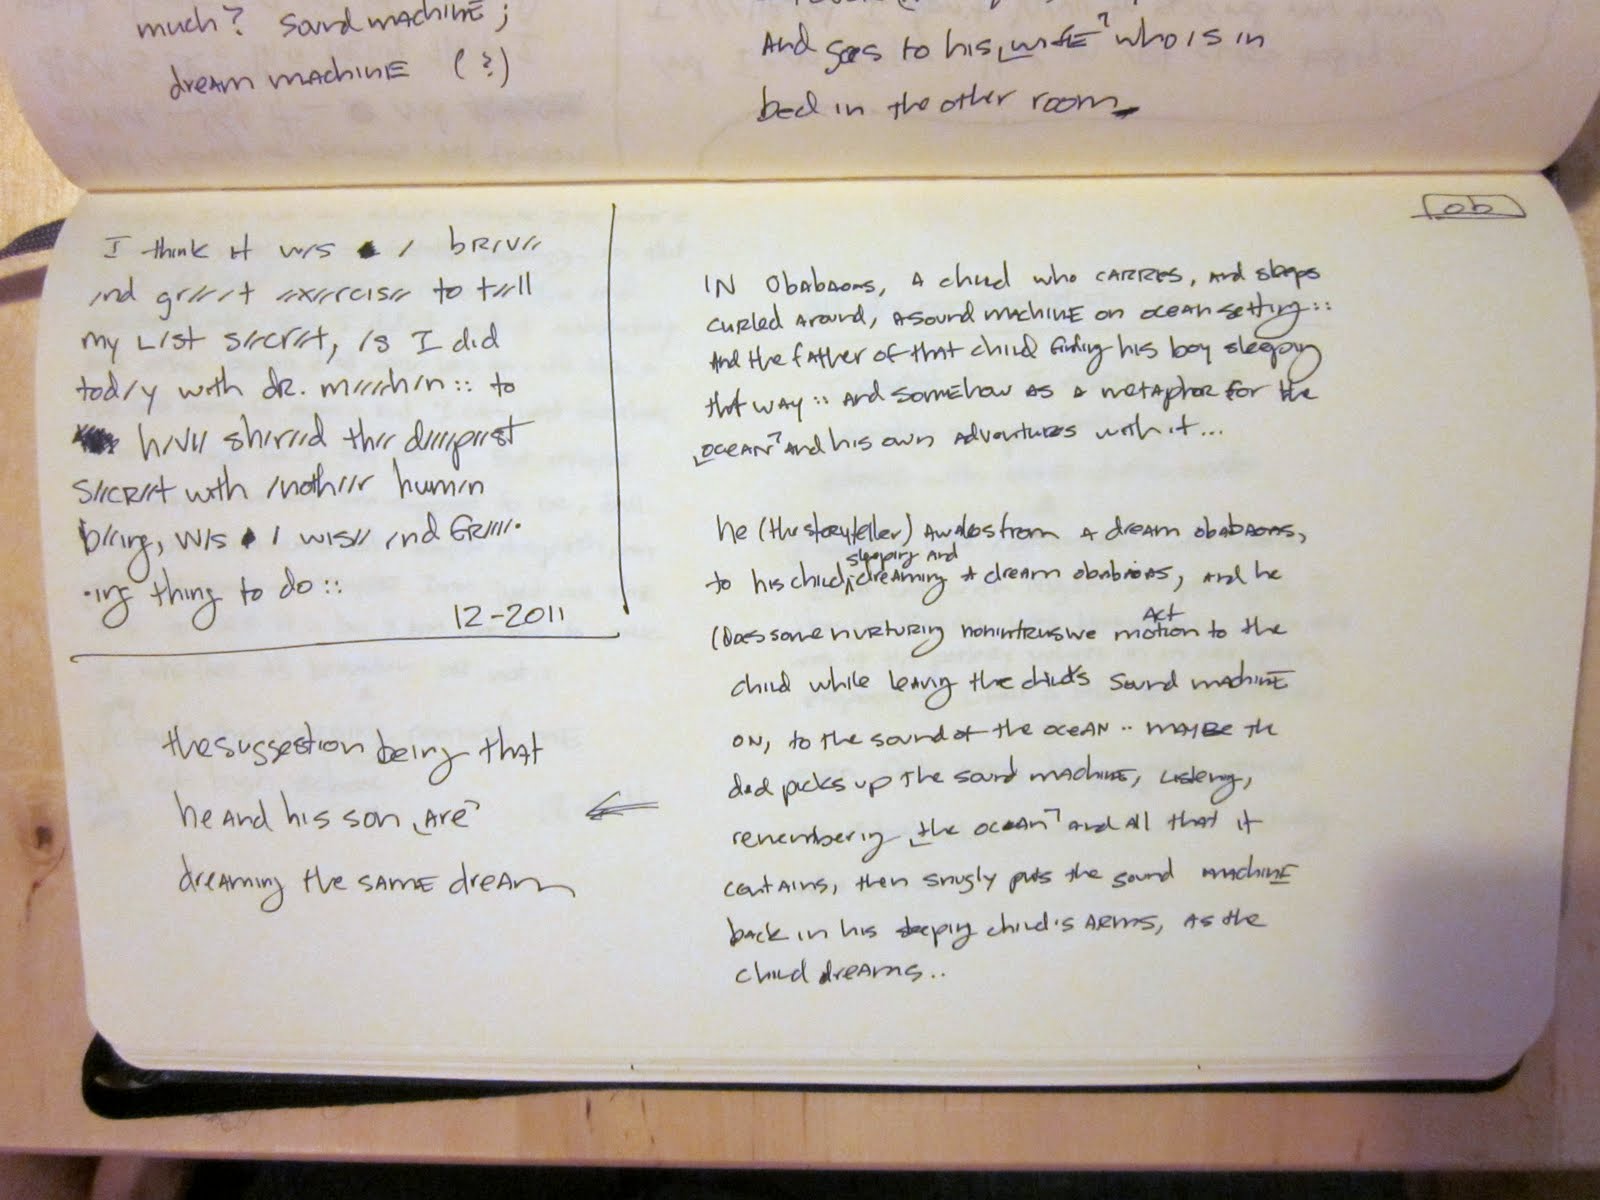 much? sound machine;
dream machine (?)
And goes to his ⌞wife⌝ who is in
bed in the other room
I think it w/s / br/v//
/nd gr///t //x//rcis// to t//ll
my L/st s//cr//t, /s I did
tod/y with dr. :: to
h/v// sh/r//d th// d////p//st
s//cr//t with /noth//r hum/n
b//ing, w/s / wis// /nd fr////·
·ing thing to do ::
12-2011
the suggestion being that
he and his son ⌞are⌝
dreaming the same dream
←
ob
IN Obabaoas, A child who carries, and sleeps
curled around, a sound machine on ocean setting ::
And the father of that child finding his boy sleeping
that way :: And somehow as a metaphor for the
⌞ocean⌝ and his own adventures with it...
he (the storyteller) Awakes from a dream obabaoas,
sleeping and
to his child, dreaming a dream obabaoas, and he
Act
(does some nurturing nonintrusive motion to the
child while leaving the child's sound machine
on, to the sound of the ocean .. maybe the
dad picks up the sound machine, listening,
remembering ⌞the ocean⌝ and all that it
contains, then snugly puts the sound machine
back in his sleeping child's arms, as the
child dreams..